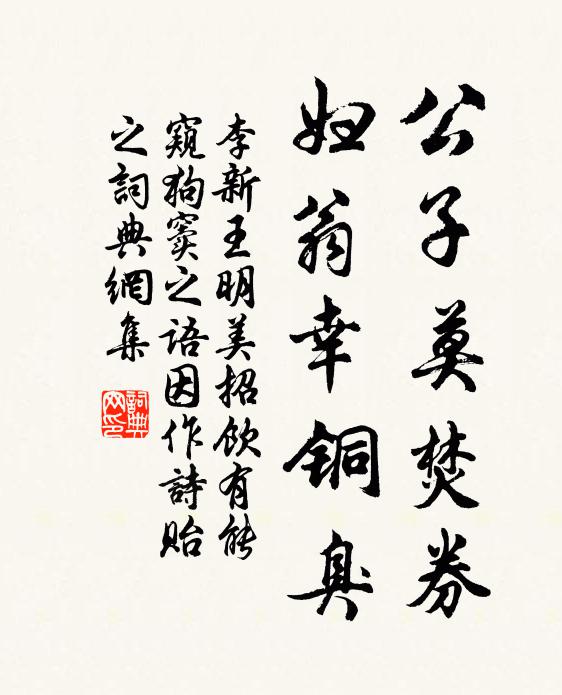 公子莫焚券
妇翁幸铜臭
李新王明美招飲有能
窺狗竇之語因作詩貽
之詞典網集
詞典
网印